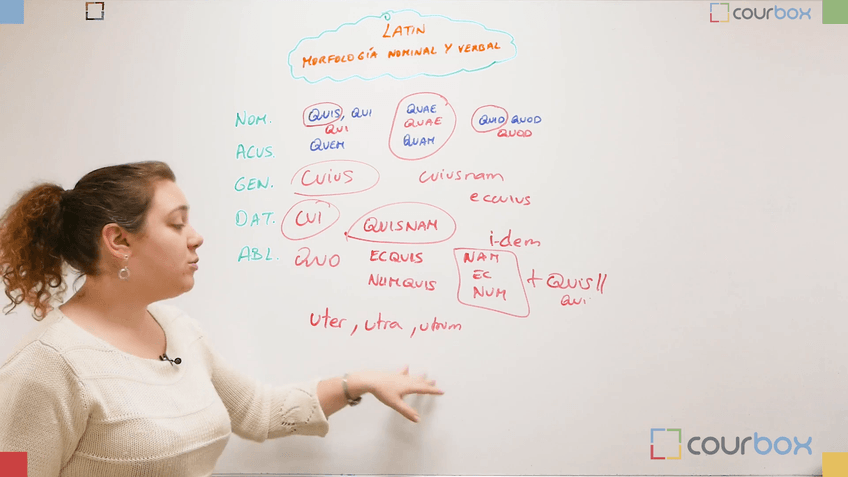 courbox
LATIN
MORFOLOGÍA NOMINAL Y VERBAL
NOM. QUIS, QUI QUAE QUID QUOD
QUI QUAE QUOD
ACUS. QUEM QUAM
GEN. CUIUS cuiusnam
eccuius
DAT. CUI QUISNAM
i-dem
ABL. QUO ECQUIS NAM
EC + QUIS //
NUMQUIS NUM QUI
uter, utra, utrum
courbox